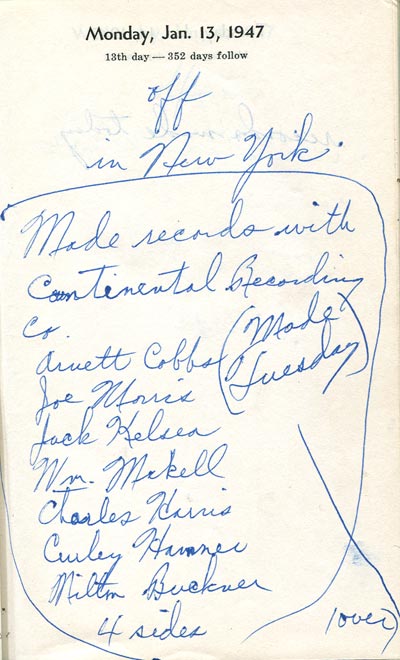 Monday, Jan. 13, 1947
13th day — 352 days follow
off
in New York.
Made records with
Continental Recording
Co.
Arnett Cobbs
(Made
Tuesday)
Joe Morris
Jack Kelsea
Wm. Makell
Charles Harris
Curley Hamner
Milton Buckner
4 sides
(over)